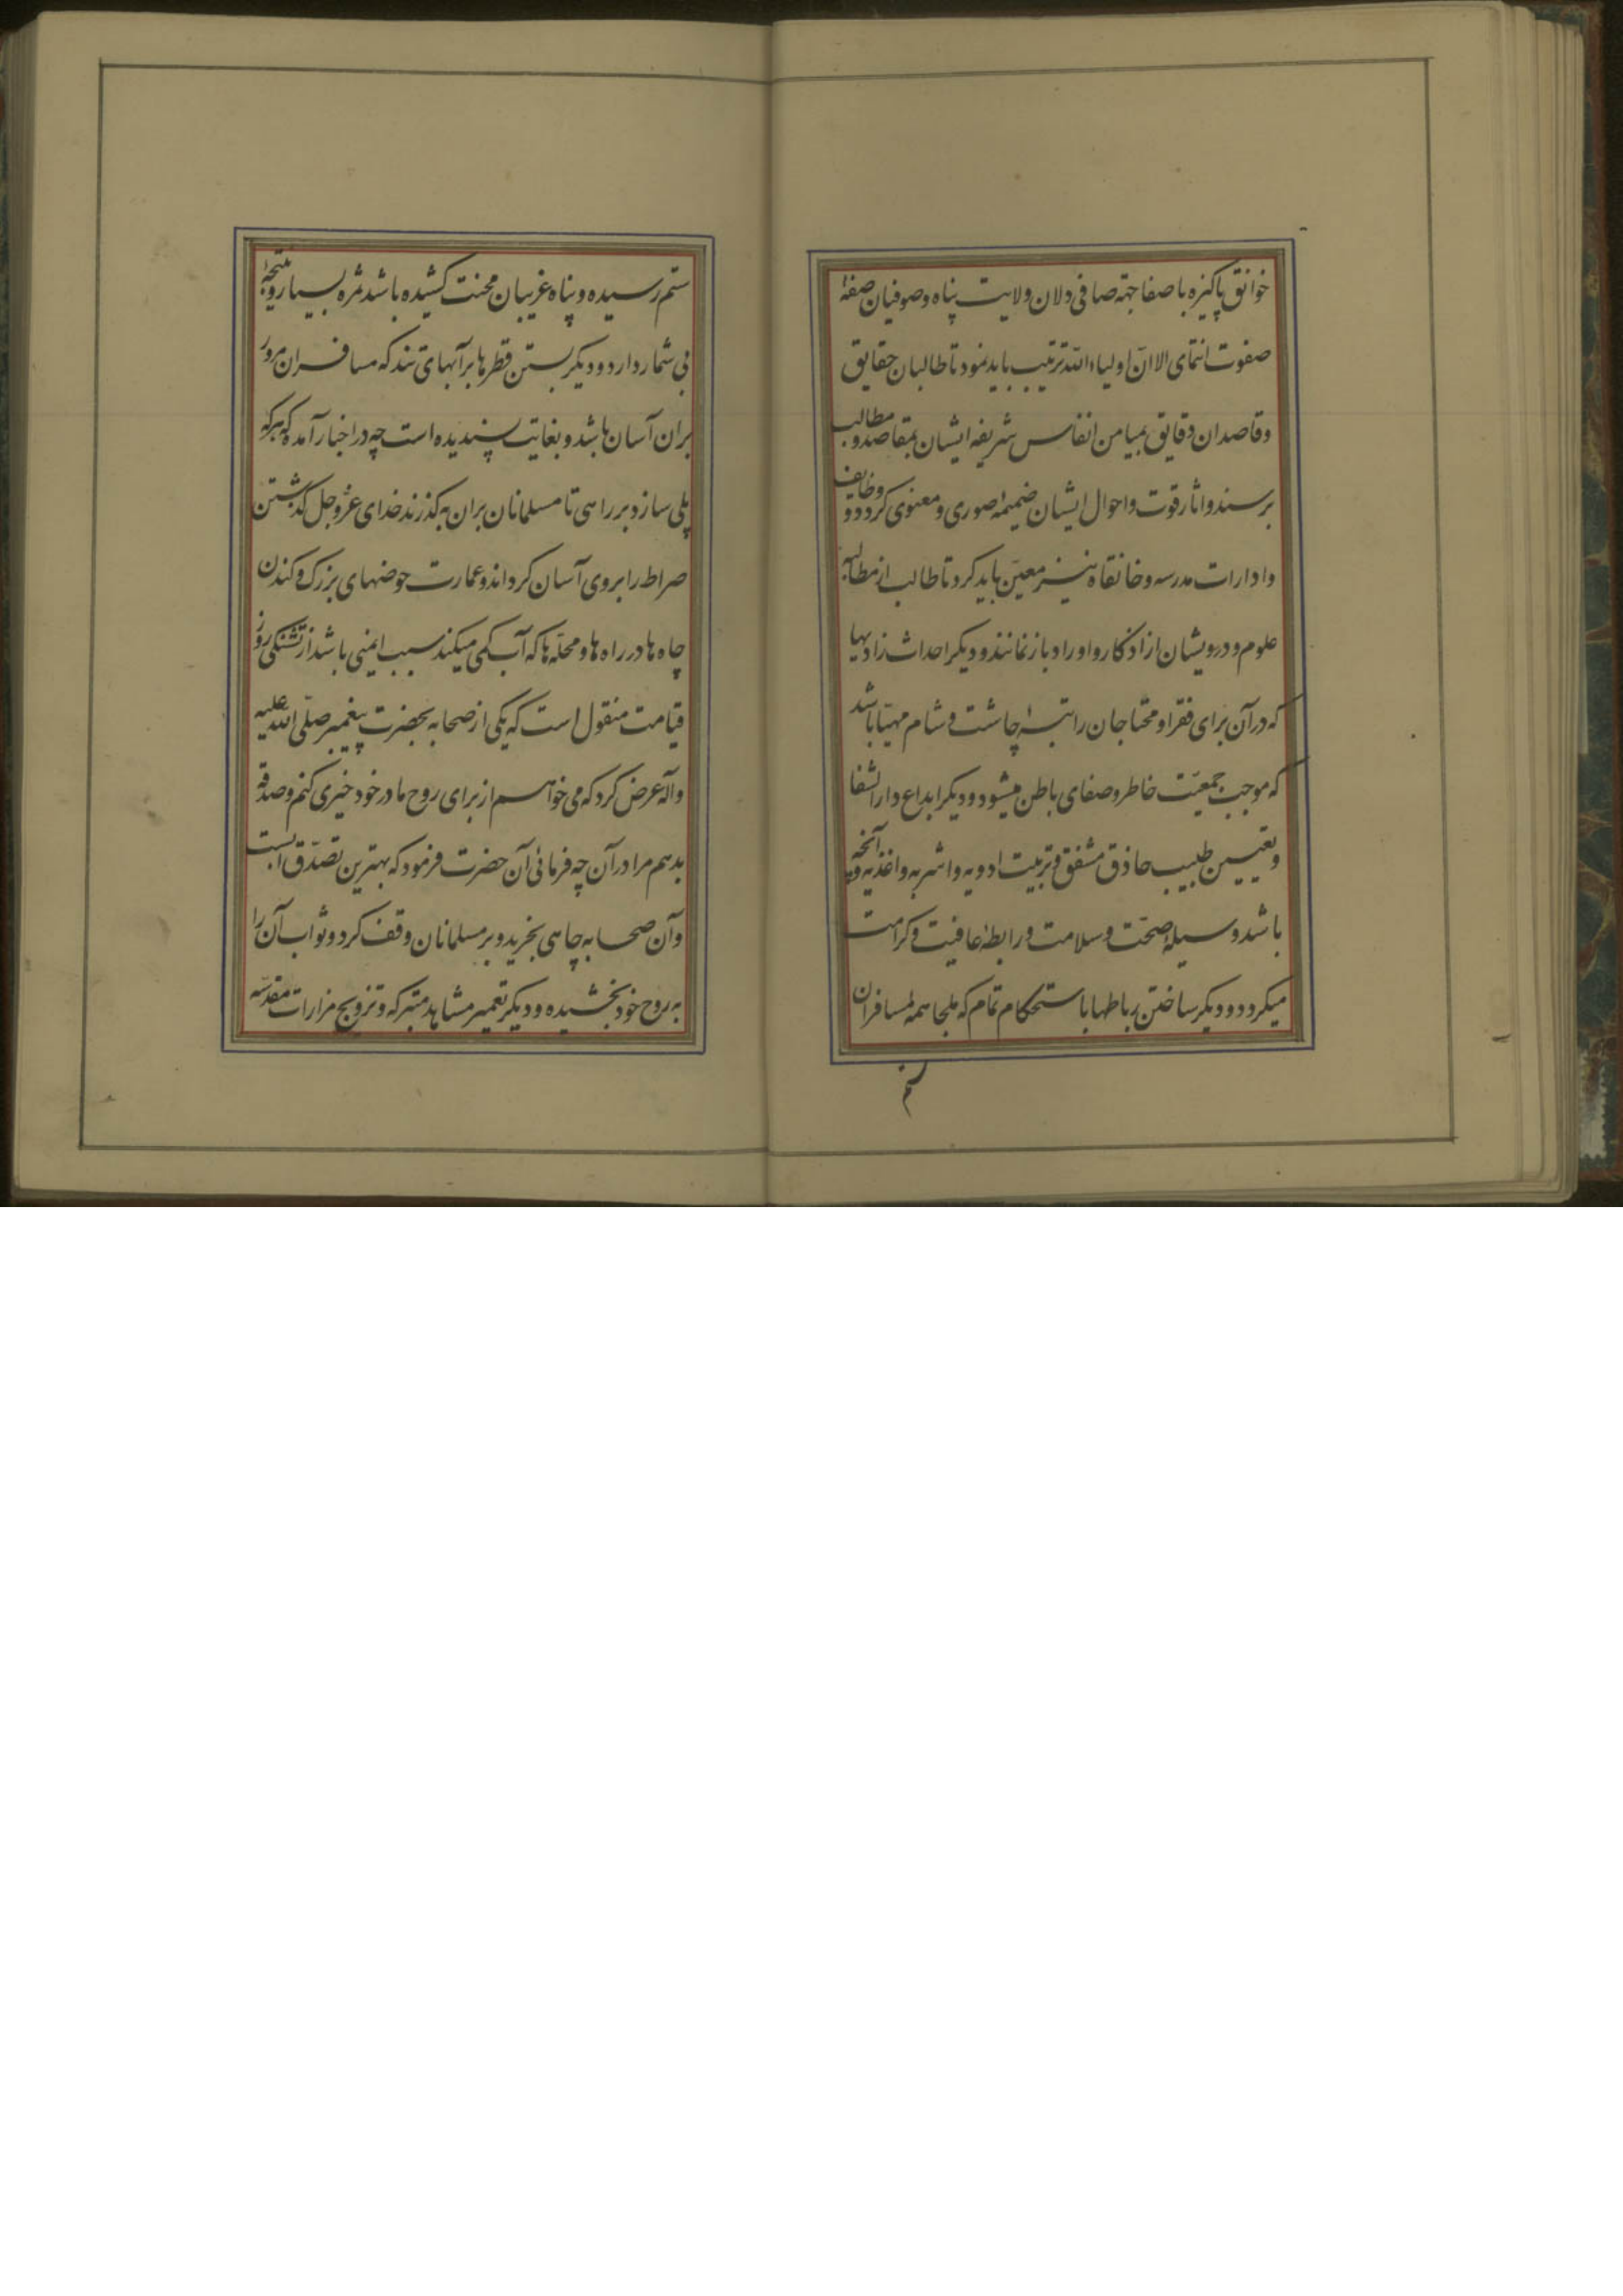 خوانق پاکیزه با صفا جهته صافی دلان ولایت پناه و صوفیان صفهٔ
صفوت انتمای الا انّ اولیاء اللّه ترتیب باید نمود تا طالبان حقایق
و قاصدان دقایق بمیامن انفاس شریفه ایشان بمقاصد و مطالب
برسند و اثار قوت و احوال ایشان ضمیمه صوری و معنوی کردد و وظایف
و ادارات مدرسه و خانقاه نیز معیّن باید کرد تا طالب از مطالبه
علوم و درویشان از اذکار و اوراد باز نمانند و دیکر احداث زاویها
که در آن برای فقرا و محتاجان راتبهٔ چاشت و شام مهیّا باشد
که موجب جمعیّت خاطر و صفای باطن میشود و دیکر ابداع دارالشفا
و تعیین طبیب حاذق مشفق و تربیت ادویه و اشربه و اغذیه و آنچه
باشد وسیلهٔ صحّت و سلامت و رابطهٔ عافیت و کرامت
میکردد و دیکر ساختن رباطها با استحکام تمام که ملجا همه مسافران
ستم رسیده و پناه غریبان محنت کشیده باشد ثمره بسیار و نتیجهٔ
بی شمار دارد و دیکر بستن قطرها بر آبهای تند که مسافران مرور
بران آسان باشد و بغایت پسندیده است چه در اخبار آمده که هرکه
پلی سازد بر راهی تا مسلمانان بران بکذرند خدای عزّ و جل کذشتن
صراط را بروی آسان کرداند و عمارت حوضهای بزرک و کندن
چاه ها در راه ها و محلّه ها که آب کمی میکند سبب ایمنی باشد از تشنکی روز
قیامت منقول است که یکی از صحابه بحضرت پیغمبر صلّی اللّه علیه
و آله عرض کرد که می خواهم از برای روح مادر خود خیری کنم و صدقه
بدهم مرا در آن چه فرمائی آن حضرت فرمود که بهترین تصدّق آبست
و آن صحابه چاهی بخرید و بر مسلمانان وقف کرد و ثواب آن را
به روح خود بخشیده و دیکر تعمیر مشاهد متبرکه و ترویج مزارات مقدّسه